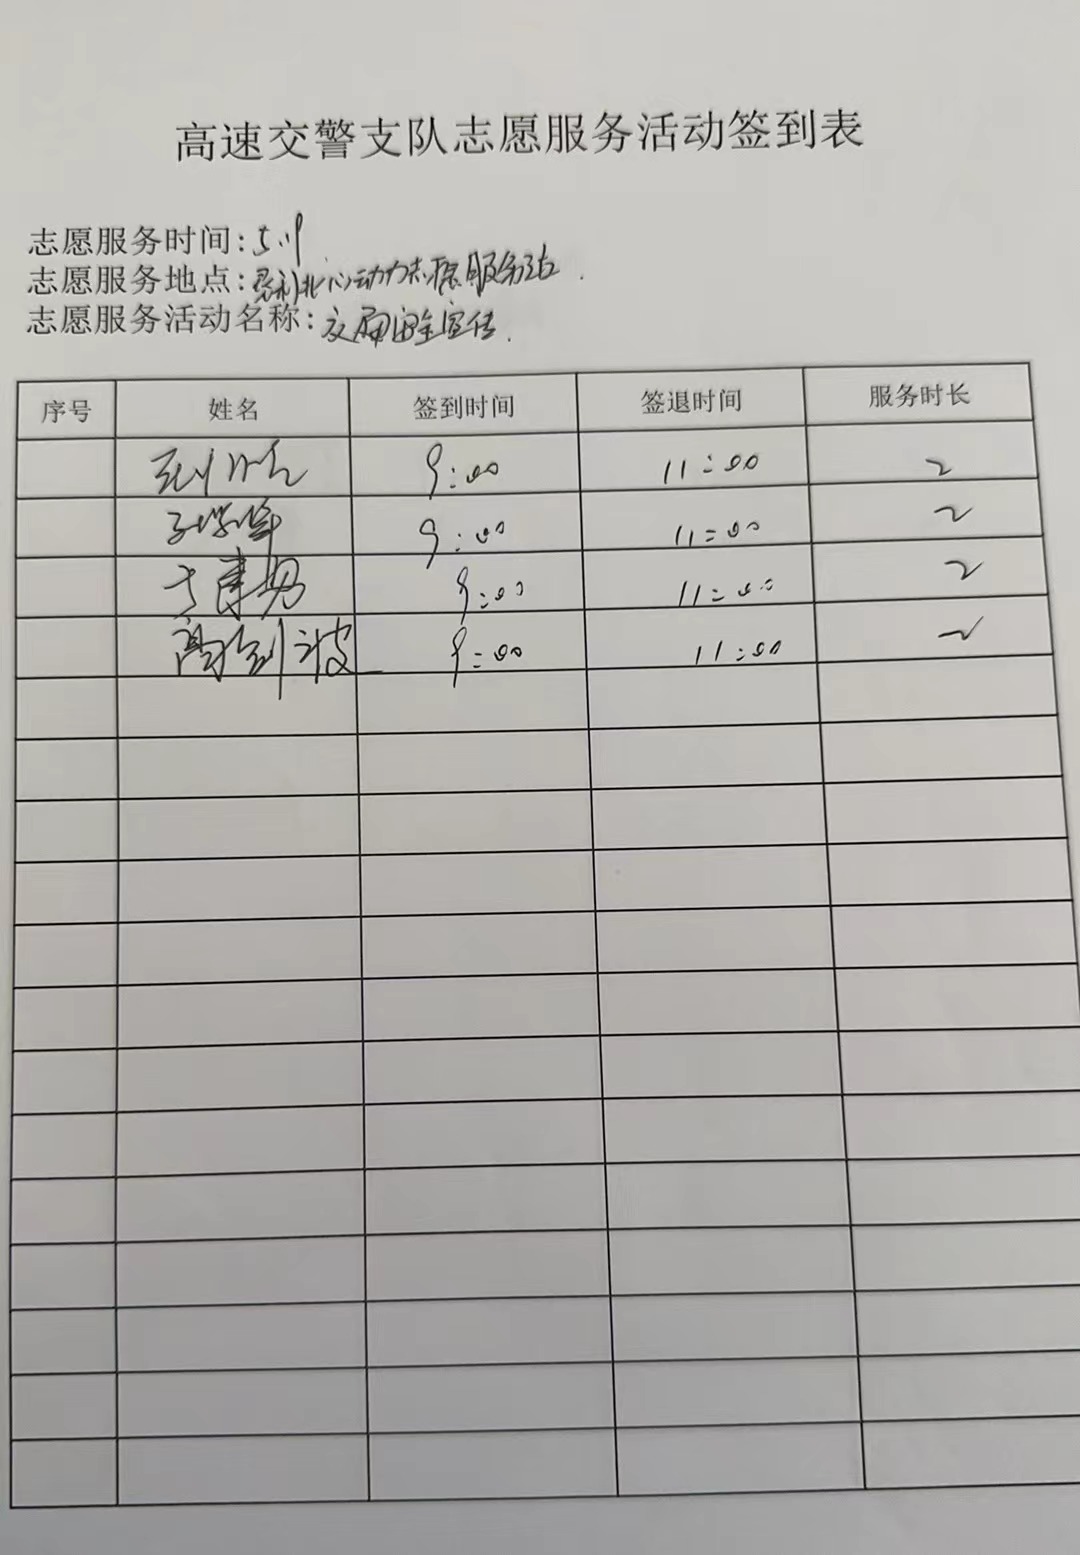 高速交警支队志愿服务活动签到表
志愿服务时间:5.19
志愿服务地点:心动力志愿服务站.
志愿服务活动名称:交通安全宣传.
序号 姓名 签到时间 签退时间 服务时长
9:00 11:00 2
9:00 11:00 2
9:00 11:00 2
9:00 11:00 2